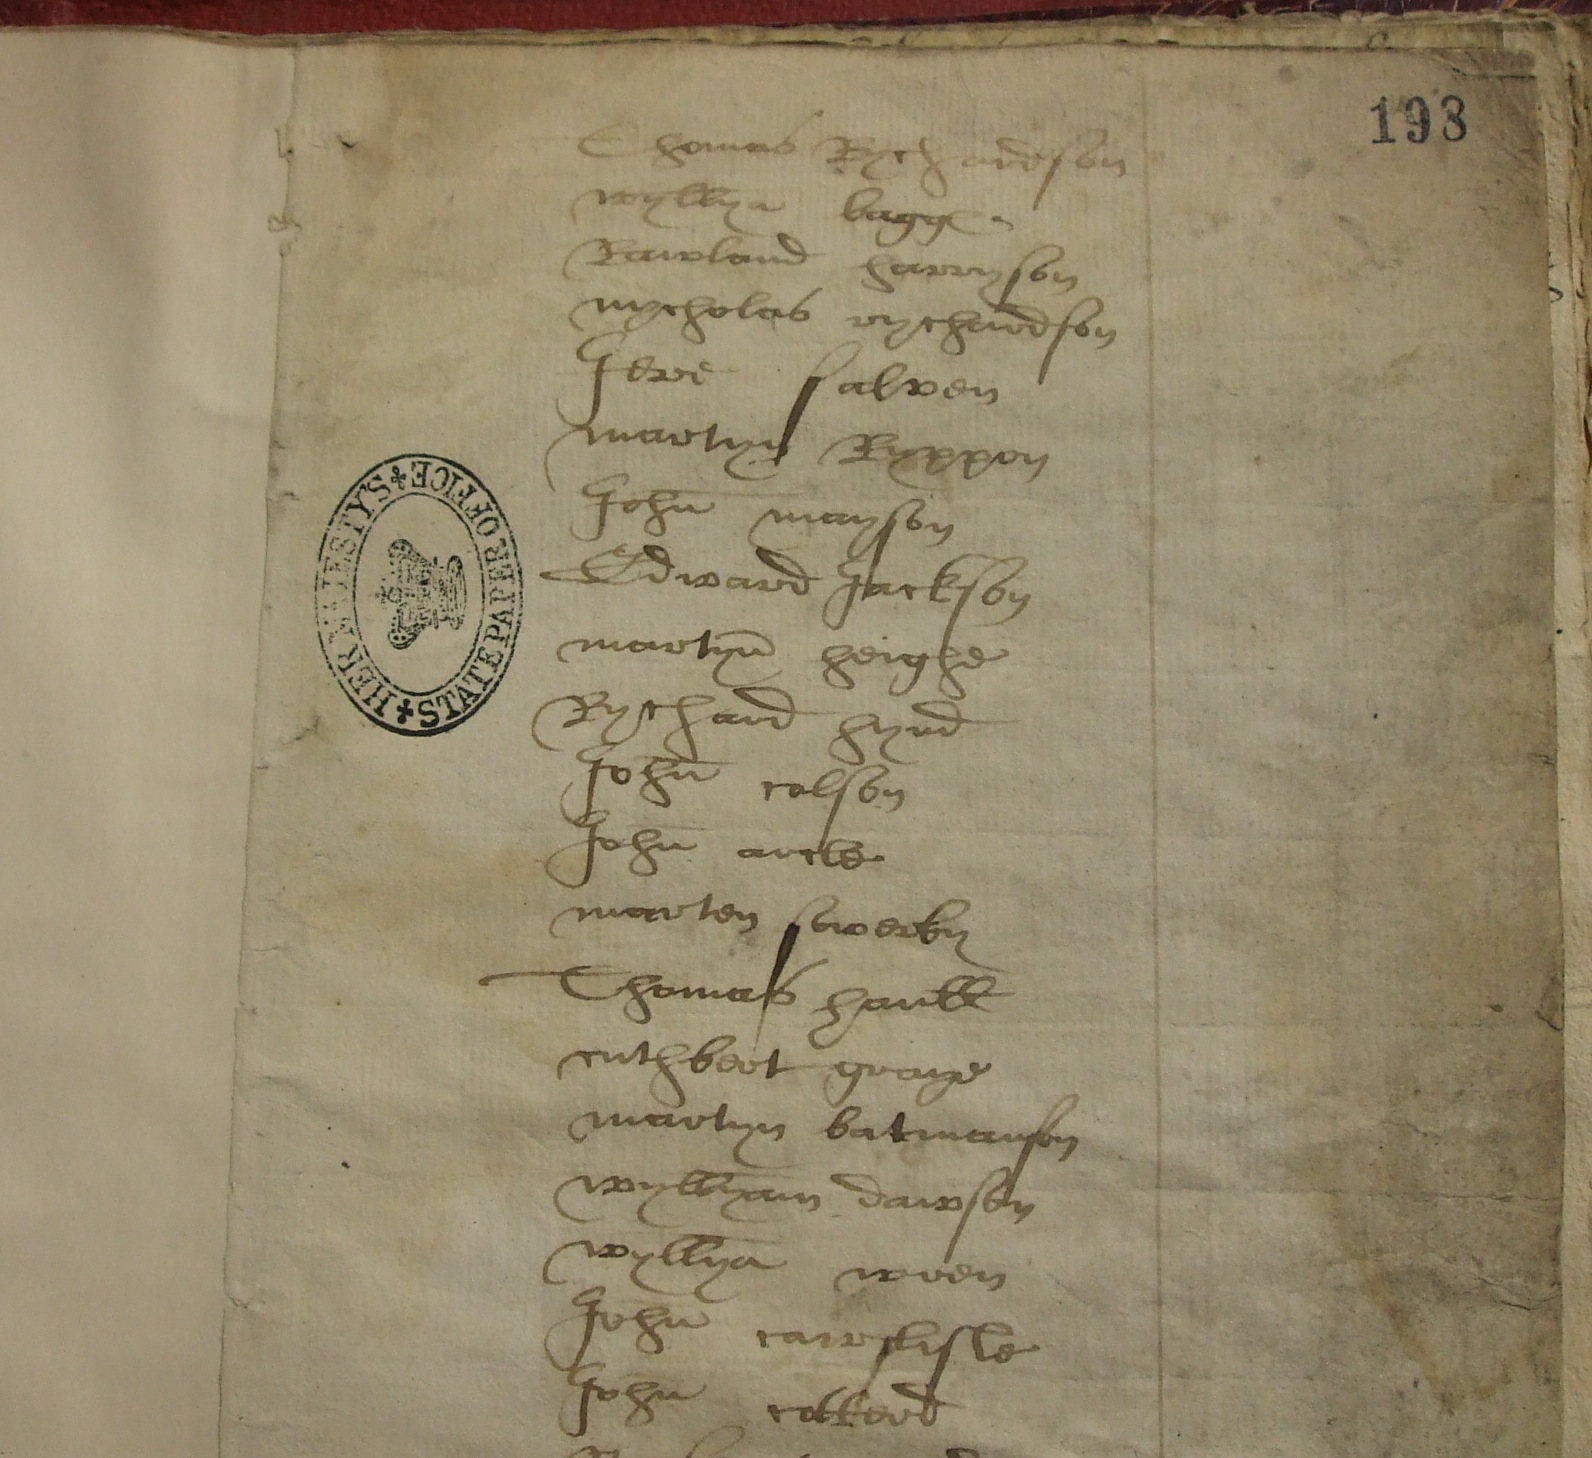 193
Thomas Rychardson
wyllya bagge
Rawland harryson
nycholas rychardson
Jere salven
martyn Ryppon
John mayson
Edward Jackson
martyn heighe
Rychard hynd
John colson
John arcle
marten sowerby
Thomas haull
cuthbert graye
martyn batmanson
wyllyam dawson
wyllya wren
John carslisle
John cokkerd
HER MAJESTY'S STATE PAPER OFFICE